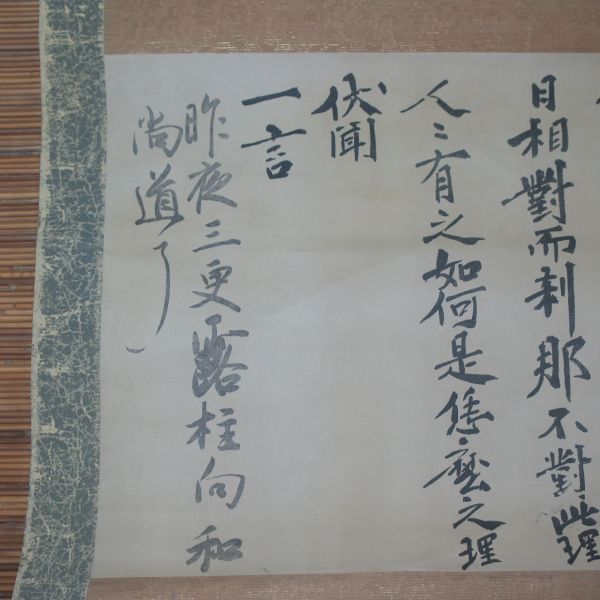 日相對而刹那不對此理
人〻有之如何是恁麼之理
伏聞
一言
昨夜三更露柱向和
尚道了